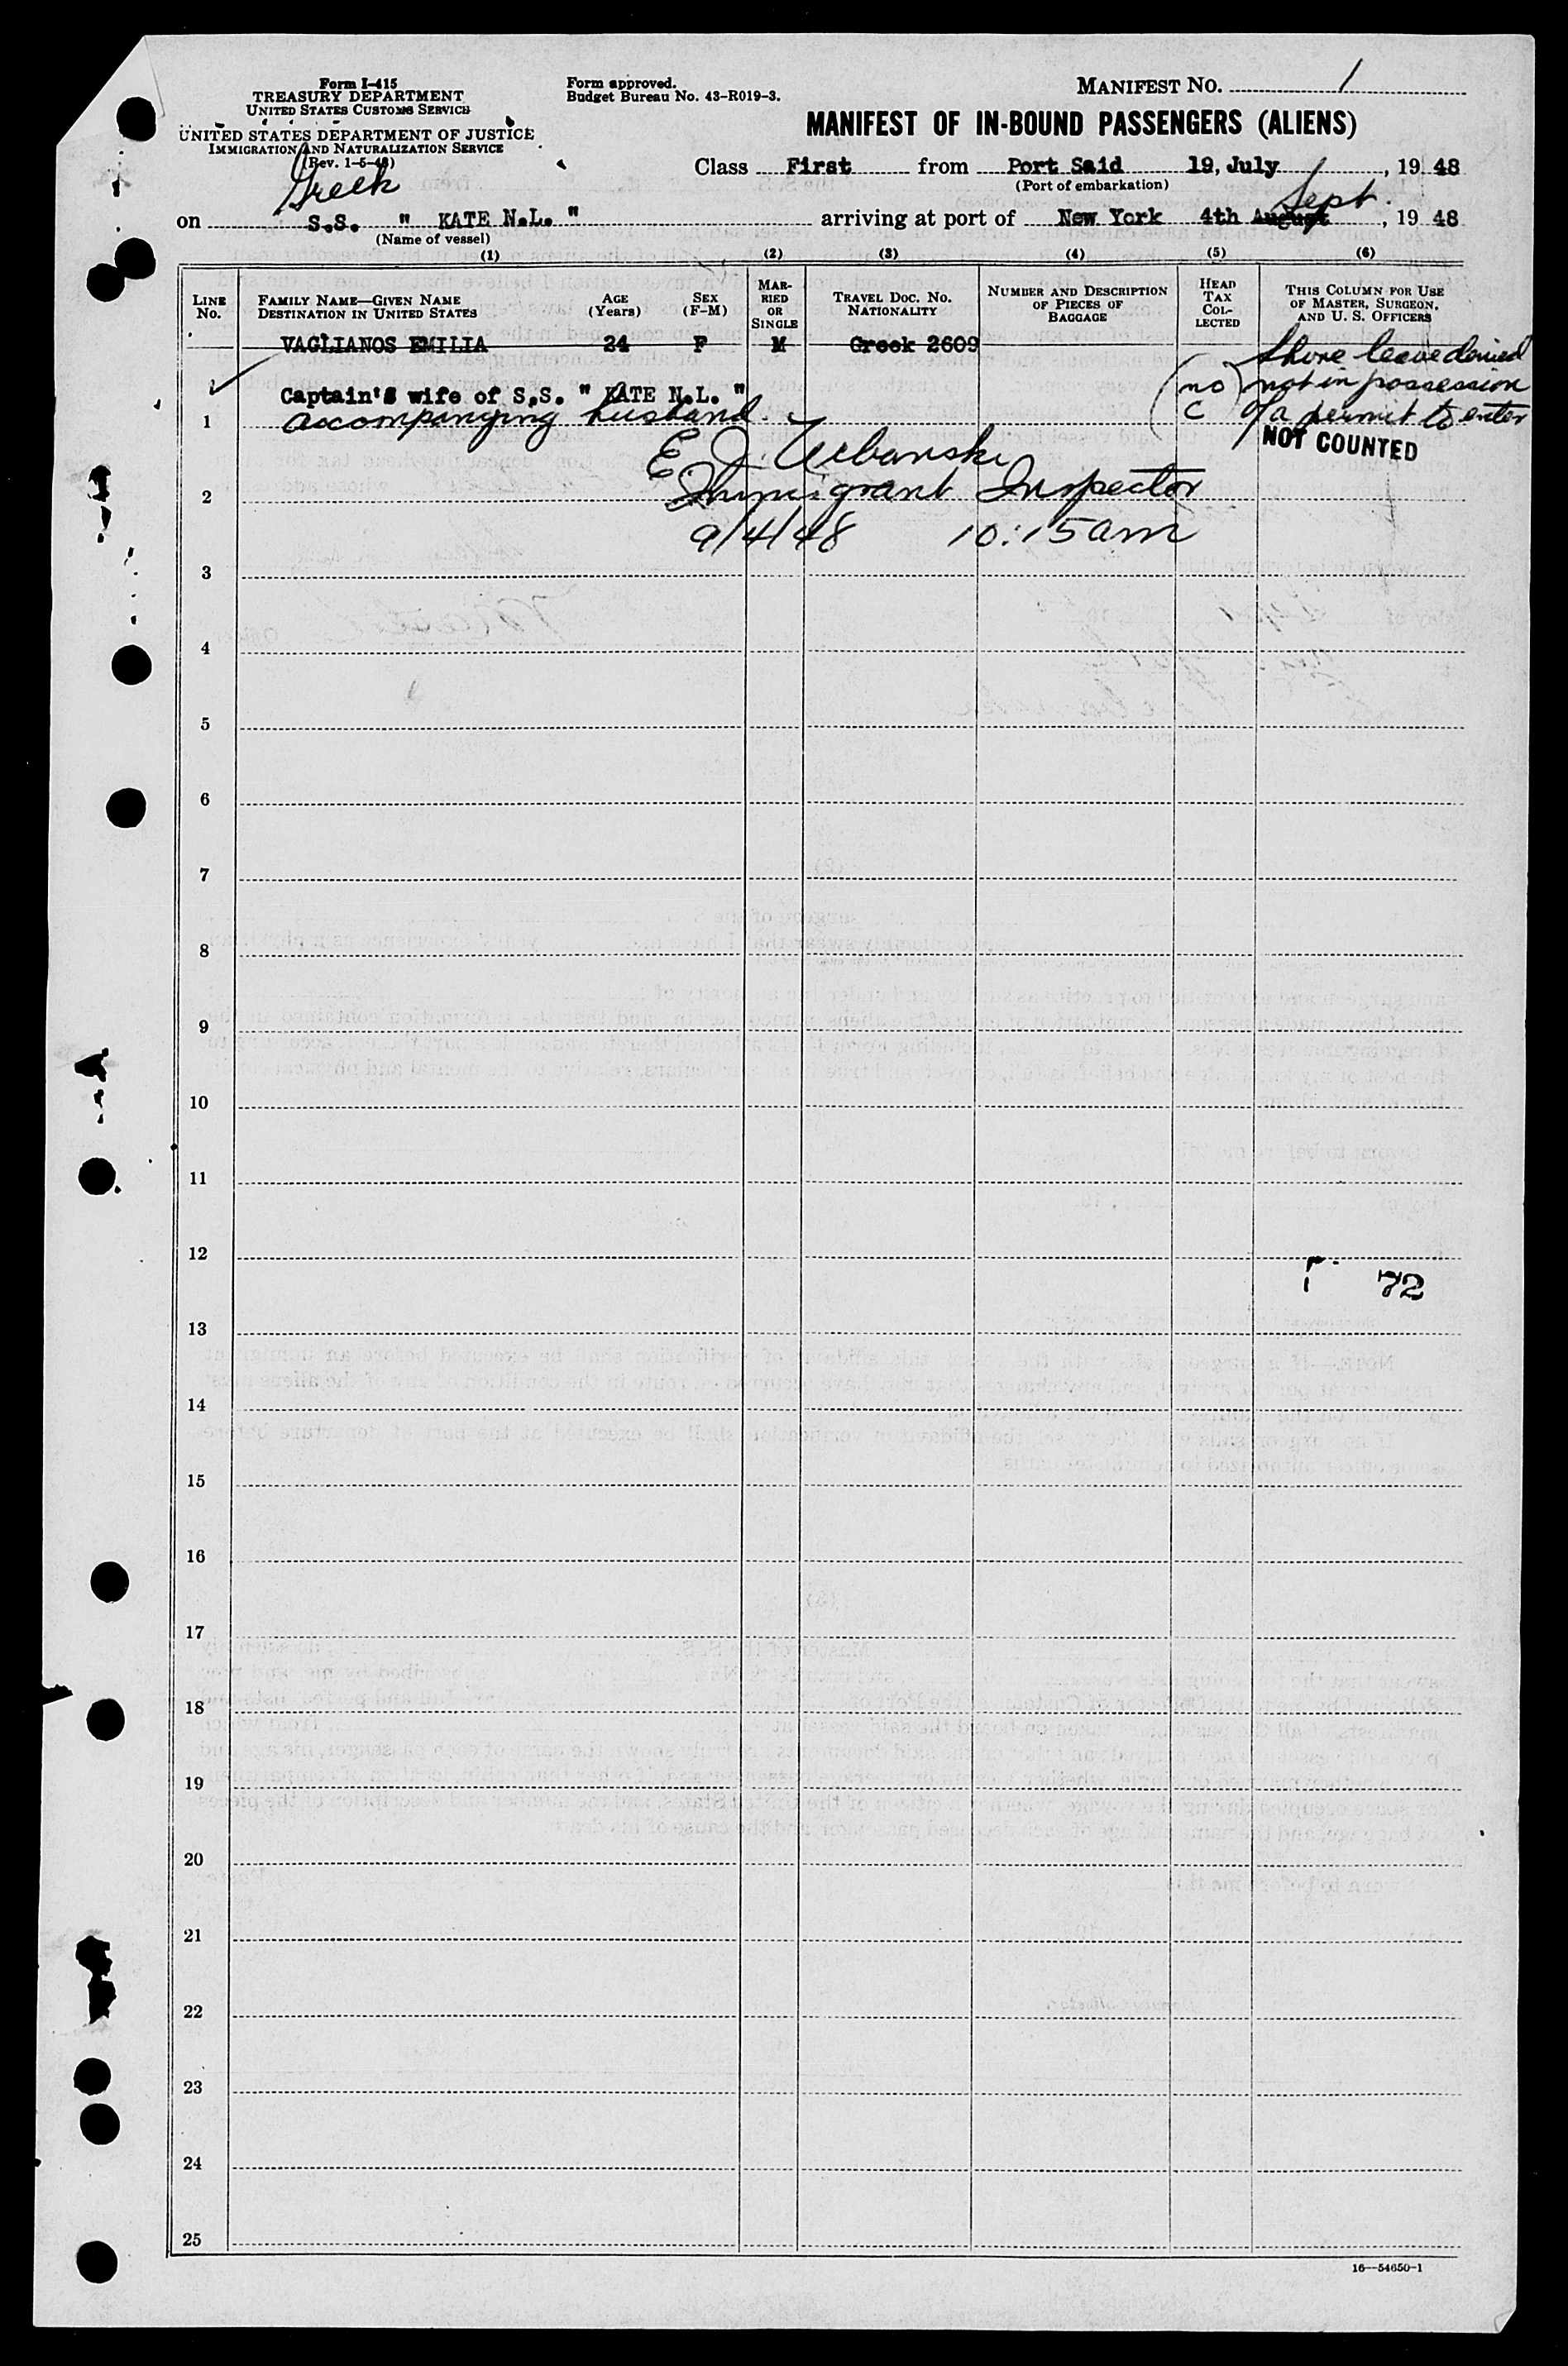 Form I-415
TREASURY DEPARTMENT
UNITED STATES CUSTOMS SERVICE
UNITED STATES DEPARTMENT OF JUSTICE
IMMIGRATION AND NATURALIZATION SERVICE
(Rev. 1-5-48)
Form approved.
Budget Bureau No. 43-R019-3.
MANIFEST NO. 1
MANIFEST OF IN-BOUND PASSENGERS (ALIENS)
Class First from Port Said 19, July, 19 48
(Port of embarkation)
Greek
Sept.
on S.S. " KATE N.L. " arriving at port of New York 4th August, 19 48
(Name of vessel)
(1) (2) (3) (4) (5) (6)
LINE No.
FAMILY NAME—GIVEN NAME
DESTINATION IN UNITED STATES
AGE (Years)
SEX (F-M)
MARRIED OR SINGLE
TRAVEL DOC. NO. NATIONALITY
NUMBER AND DESCRIPTION OF PIECES OF BAGGAGE
HEAD TAX COLLECTED
THIS COLUMN FOR USE OF MASTER, SURGEON, AND U. S. OFFICERS
VAGLIANOS EMILIA 24 F M Greek 2609
Shore leave denied
not in possession
of a permit to enter
no
C
NOT COUNTED
Captain's wife of S.S. " KATE N.L. "
1 accompanying husband.
E. J. Urbanski
2 Immigrant Inspector
9/4/48 10:15am
3
4
5
6
7
8
9
10
11
12
72
13
14
15
16
17
18
19
20
21
22
23
24
25
16—54650-1